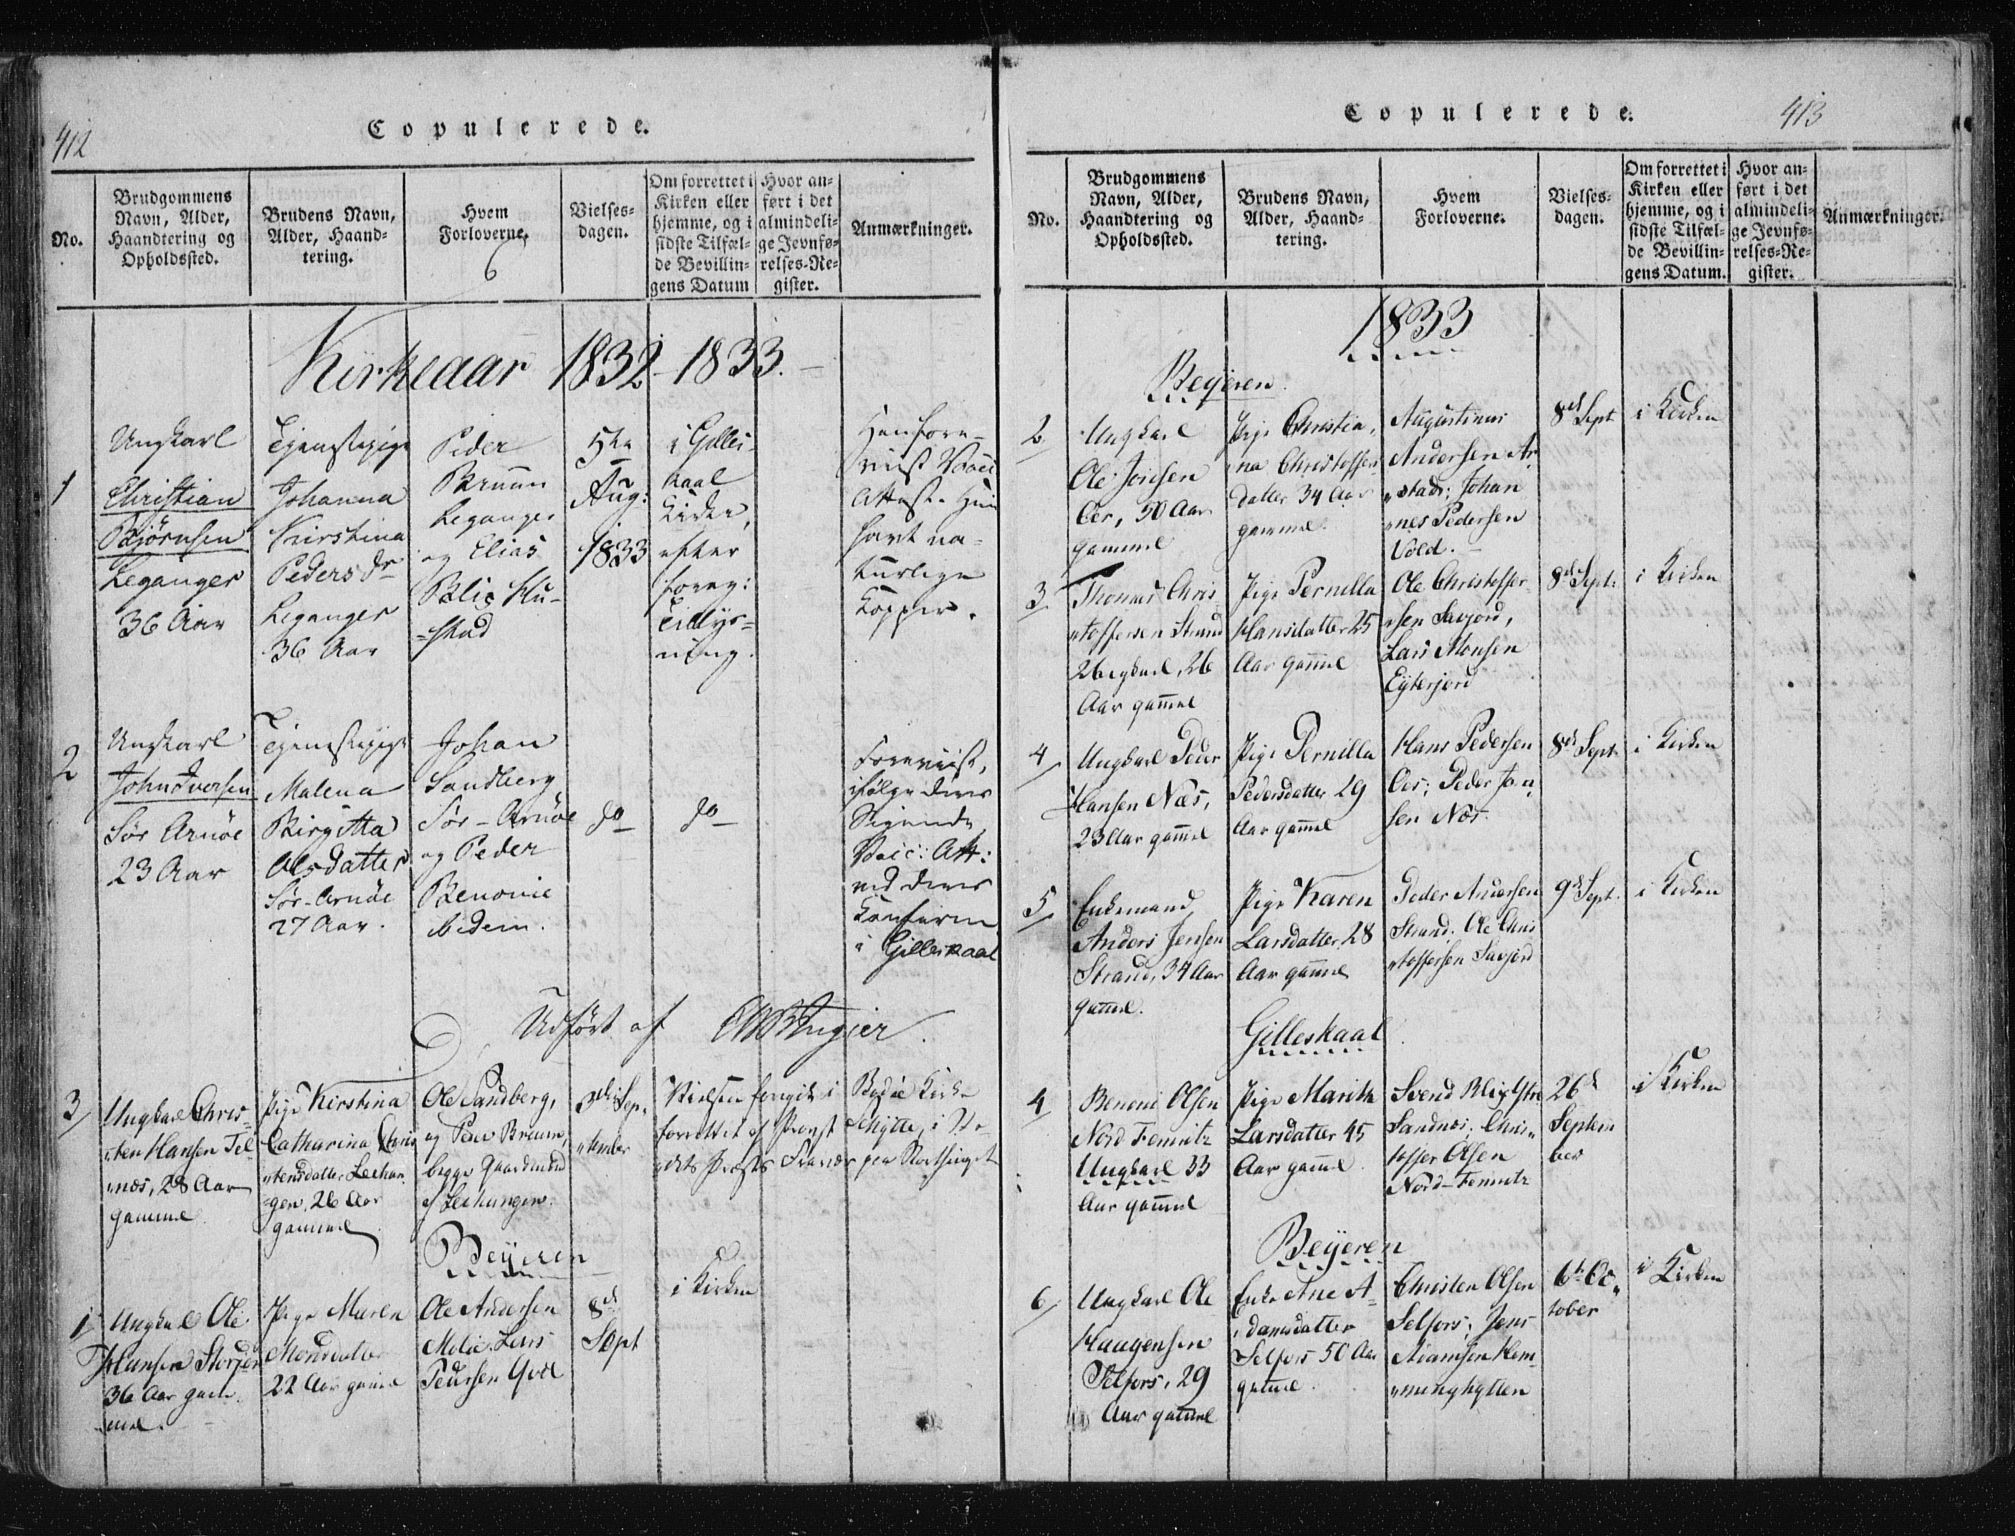 412
Copulerede.
No.
Brudgommens
Navn, Alder,
Haandtering og
Opholdssted.
Brudens Navn,
Alder, Haand-
tering.
Hvem
Forloverne.
6
Vielses-
dagen.
Om forrettet i
Kirken eller
hjemme, og i
sidste Tilfæl-
de Bevillin-
gens Datum
Hvor an-
ført i det
almindeli-
ge Jevnfø-
relses-Re-
gister.
Anmærkninger.
Kirkeaar 1832-1833.
1
Ungkarl
Christian
Bjørnsen
Leganger
36 Aar
Tjenestepige
Johanna
Kirstina
Peders Dr
Leganger
36 Aar
Peder
Bruun
Leganger
og Elias
Blix
5te
Aug:
1833
i Gilles-
kaal
Kirke,
efter
foreg:
Tillys-
ning.
Attest. Hun
havt na-
turlige
Kopper.
2
Ungkarl
John Iversen
Sør Arnøe
23 Aar
Tjenestepige
Malena
Birgitta
Olsdatter
Sør-Arnöe
27 Aar.
Johan
Sandberg
Sør-Arnøe
og Peder
Benonie
ibidem.
do
do
Foreviist,
ifølge deres
Sigende
Vacc: Att:
ved deres
Confirm
i Gilleskaal
Udført af
3/
Ungkarl Chris-
"ten Hansen Tel-
"næs, 28 Aar
gammel
Pige Kirstina
Catharina Chris
"tensdatter
gen, 26 Aar
gammel
Ole Sandberg,
og Peder Bruun,
begge Gaardmænd
3die Sep-
"tember
Vielsen foregik i Bodøe Kirke
forrettet af Provst Schytte, i
Præsts Fravær paa Storthinget
Beyeren
1/
Ungkarl Ole
Hansen Storjor
36 Aar gam-
mel.
Pige Maren
Monsdatter
22 Aar gammel
Ole Andersen
Lars
Pedersen
8de
Sept
i Kirken
Copulerede.
413
No.
Brudgommens
Navn, Alder,
Haandtering og
Opholdssted.
Brudens Navn,
Alder, Haand-
tering.
Hvem
Forloverne.
Vielses-
dagen.
Om forrettet i
Kirken eller
hjemme, og i
sidste Tilfæl-
de Bevillin-
gens Datum.
Hvor an-
ført i det
almindeli-
ge Jevnfø-
relses-Re-
gister.
Anmærkninger.
1833
Beyeren.
2
Ungkarl
Ole Jonsen
Oes, 50 Aar
gammel
Pige Christia-
"na Christoffers
datter 34 Aar
gammel.
Augustinus
Andersen Ar-
"stad; Johan
"nes Pedersen
Vold.
8de Sept
i Kirken
3/
Thomas Chris
"toffersen Strand
Ungkarl, 26
Aar gammel
Pige Pernilla
Hansdatter 25
Aar gammel
Ole Christoffer-
"sen Savjord,
Lars Monsen
Eyterjord
8de Sept:
i Kirken
4/
Ungkarl Peder
Hansen Næs,
23 Aar gammel
Pige Pernilla
Pedersdatter 29
Aar gammel
Hans Pedersen
Oes; Peder Jon-
sen Næs.
8de Sept:
i Kirken
5/
Enkemand
Anders Jensen
Strand, 34 Aar
gammel.
Pige Karen
Larsdatter, 28
Aar gammel
Peder Andersen
Strand; Ole Chris
"toffersen Savjord
9de Sept.
i Kirken
Gilleskaal
4/
Benoni Olsen
Nord Femritz
Ungkarl 33
Aar gammel
Pige Marith
Larsdatter 45
Aar gammel
Svend Blix Ytre
Sandnæs; Chris-
toffer Olsen
Nord-Femritz
26de
Septem
ber
i Kirken
Beyeren
6/
Ungkarl Ole
Haagensen
Selfors, 29
Aar gammel
Enke Ane A-
"damsdatter
Selfors 50 Aar
gammel
Christen Olsen
Selfors; Jens
Adamsen Hem-
"minghytten
6te Oc-
tober
i Kirken